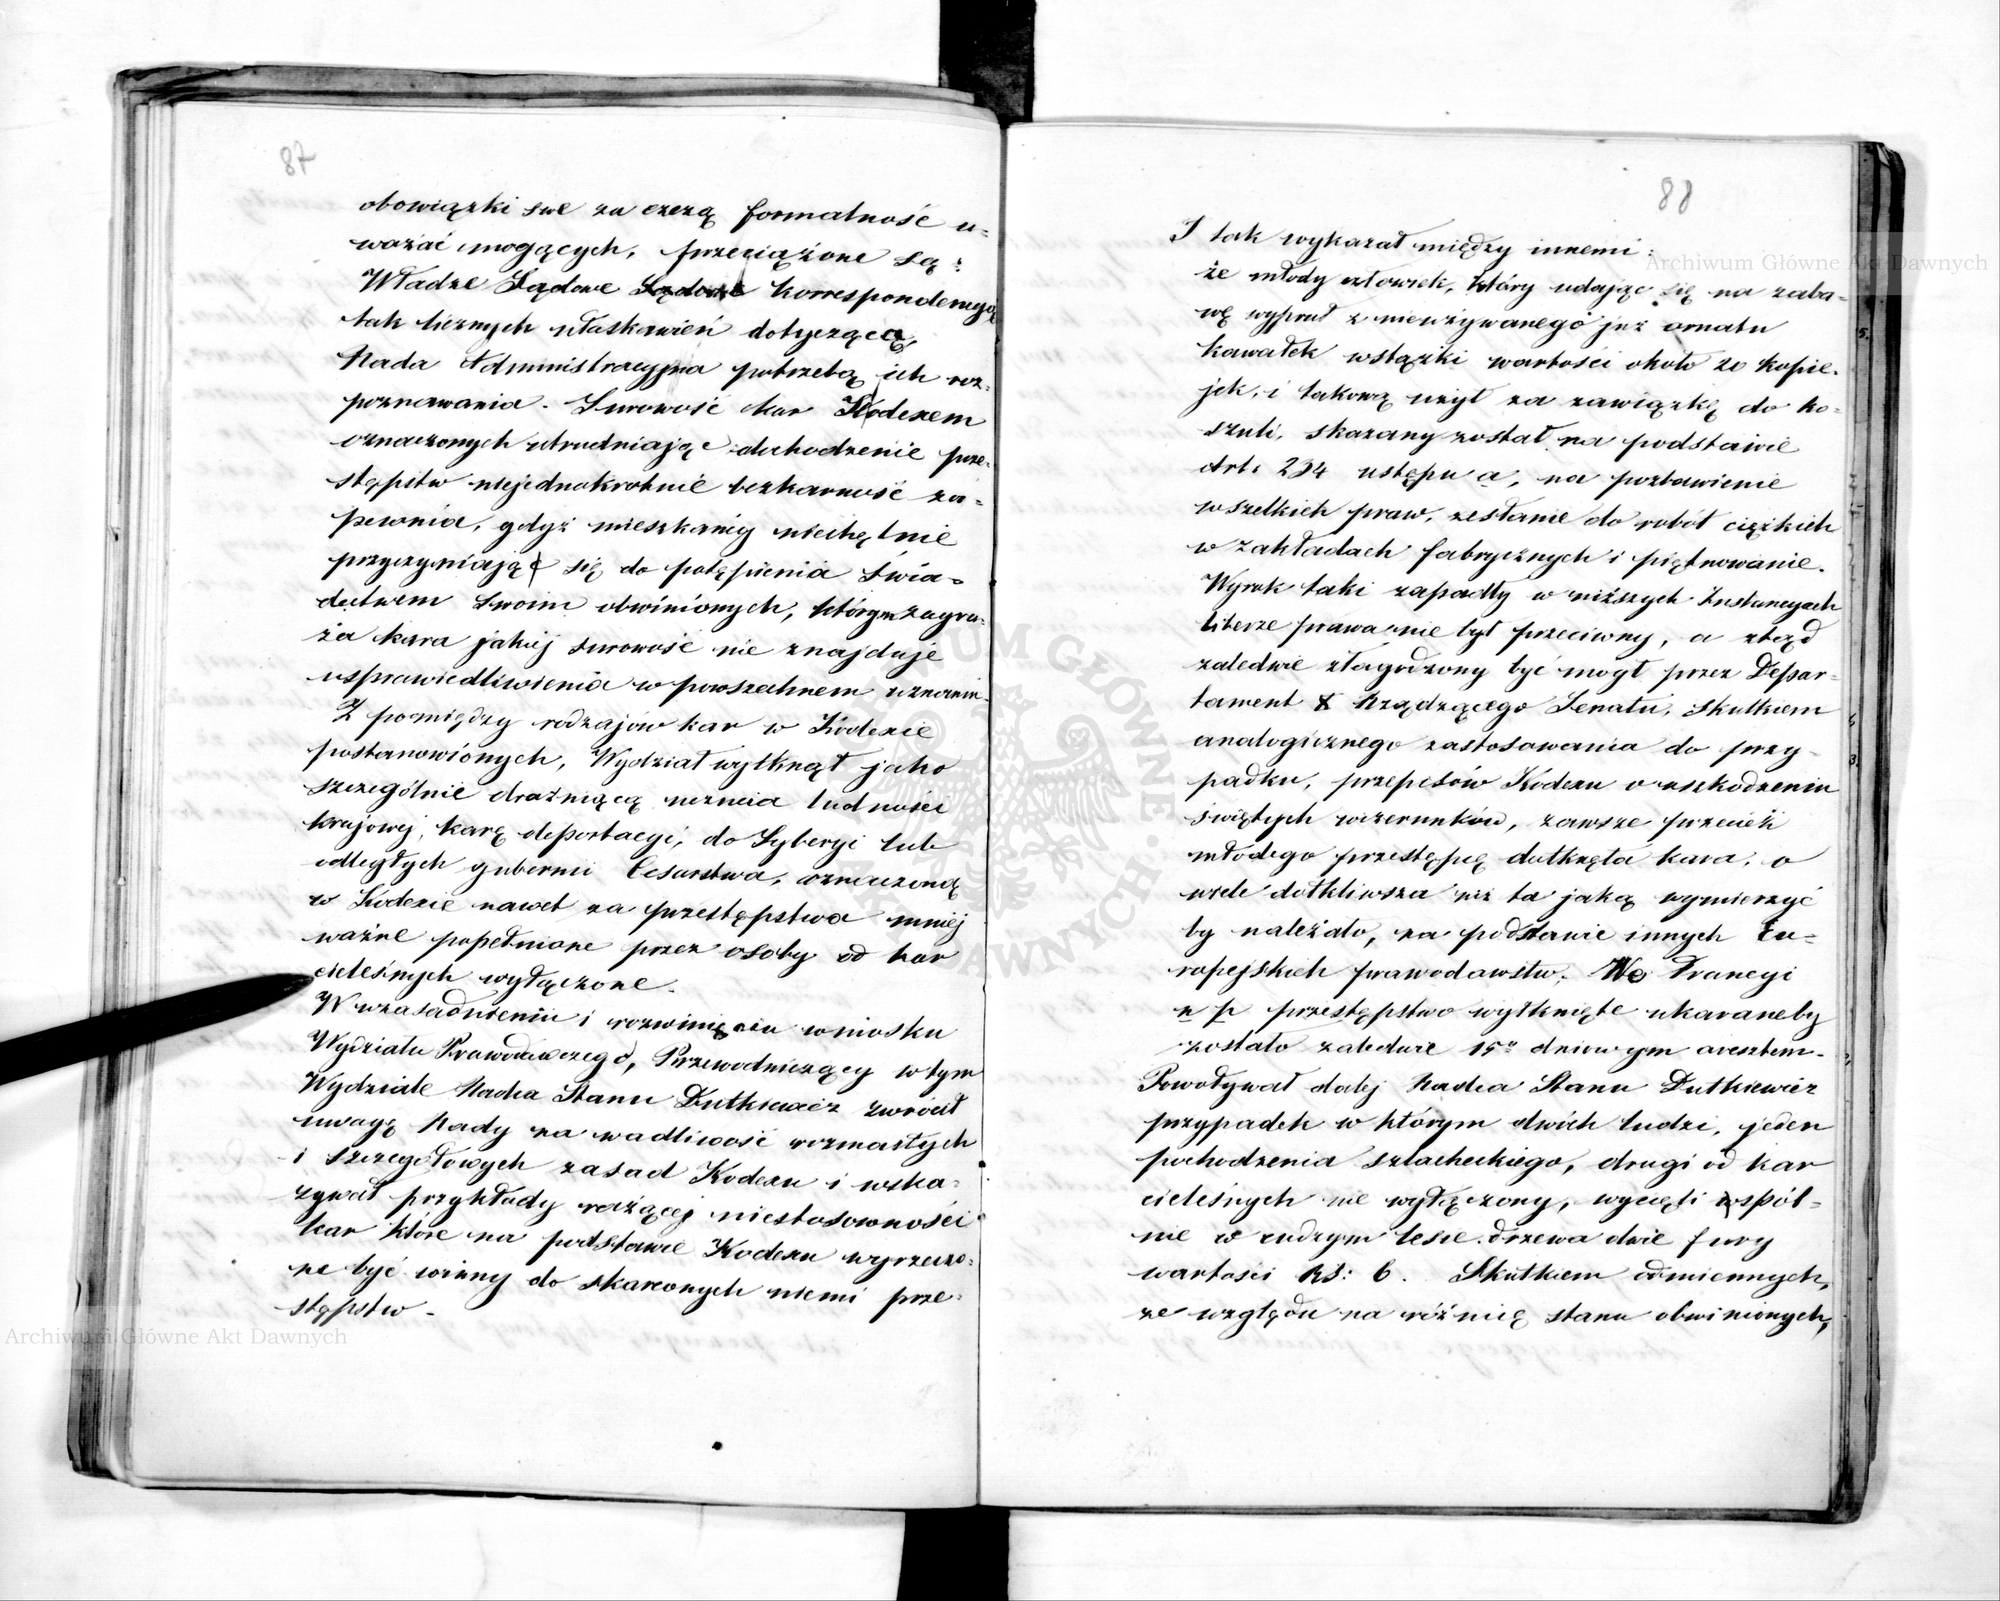 87
obowiązki swe za czczą formalność u-
ważać mogących, przeciążone są:
Władze Sądowe korrespondencyą
tak licznych ułaskawień dotyczącą,
Rada Administracyjna potrzebą ich roz-
poznawania. Surowość kar Kodexem
oznaczonych utrudniając dochodzenie prze-
stępstw niejednokrotnie bezkarność za-
pewnia, gdyż mieszkańcy niechętnie
przyczyniają się do potępienia świa-
dectwem swoim obwinionych, którym zagra-
ża kara jakiej surowość nie znajduje
usprawiedliwienia w powszechnem uznaniu.
Z pomiędzy rodzajów kar w Kodexie
postanowionych, Wydział wytknął jako
szczególnie drażniącą uczucia ludności
krajowej, karę deportacyi, do Syberyi lub
odległych gubernii Cesarstwa, oznaczoną
w Kodexie nawet za przestępstwa mniej
ważne popełnione przez osoby od kar
cieleśnych wyłączone.
W uzasadnieniu i rozwinięciu wniosku
Wydziału Prawodawczego, Przewodniczący w tym
Wydziale Radca Stanu Dutkiewicz zwrócił
uwagę Rady na wadliwość rozmaitych
i szczegółowych zasad Kodexu i wska-
zywał przykłady rażącej niestosowności
kar które na podstawie Kodexu wyrzeczo-
ne być winny do skarconych niemi prze-
stępstw.
88
I tak wykazał między innemi:
że młody człowiek, który udając się na zaba-
wę wypruł z nieużywanego już ornatu
kawałek wstążki wartości około 20 kopie-
jek, i takową użył za zawiązkę do ko-
szuli, skazany został na podstawie
Art. 234 ustępu a, na pozbawienie
wszelkich praw, zesłanie do robót ciężkich
w zakładach fabrycznych i piętnowanie.
Wyrok taki zapadły w niższych Instancyach
literze prawa nie był przeciwny, a ztąd
zaledwie złagodzony być mógł przez Depar-
tament X Rządzącego Senatu, skutkiem
analogicznego zastosowania do przy-
padku, przepisów Kodexu o uszkodzeniu
świętych wizerunków, zawsze przecież
młodego przestępcę dotknęła kara, o
wiele dotkliwsza niż ta jaką wymierzyć
by należało, na podstawie innych Eu-
ropejskich prawodawstw. We Francyi
n p przestępstwo wytknięte ukaraneby
zostało zaledwie 15o dniowym aresztem.
Powoływał dalej Radca Stanu Dutkiewicz
przypadek w którym dwóch ludzi, jeden
pochodzenia szlacheckiego, drugi od kar
cieleśnych nie wyłączony, wycięli wspól-
nie w cudzym lesie drzewa dwie fury
wartości RS: 6. Skutkiem odmiennych,
ze względu na różnicę stanu obwinionych,
Archiwum Główne Akt Dawnych
Archiwum Główne Akt Dawnych
ARCHIWUM GŁÓWNE AKT DAWNYCH